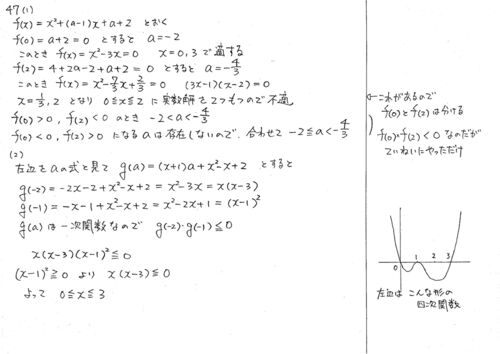 47(1)
f(x)=x²+(a-1)x+a+2 とおく
f(0)=a+2=0 とすると a=-2
このとき f(x)=x²-3x=0 x=0,3 で適する
f(2)=4+2a-2+a+2=0 とすると a=-4/3
このとき f(x)=x²-7/3x+2/3=0 (3x-1)(x-2)=0
x=1/3,2 となり 0≦x≦2 に実数解を2つもつので不適
f(0)>0, f(2)<0 のとき -2<a<-4/3
f(0)<0, f(2)>0 になるaは存在しないので、合わせて -2≦a<-4/3
(2)
左辺をaの式と見て g(a)=(x+1)a+x²-x+2 とすると
g(-2)=-2x-2+x²-x+2=x²-3x=x(x-3)
g(-1)=-x-1+x²-x+2=x²-2x+1=(x-1)²
g(a)は一次関数なので g(-2)・g(-1)≦0
x(x-3)(x-1)²≦0
(x-1)²≧0 より x(x-3)≦0
よって 0≦x≦3
←これがあるので
f(0)とf(2)は分ける
f(0)・f(2)<0 なのだが
ていねいにやっただけ
0 1 2 3
左辺は こんな形の
四次関数